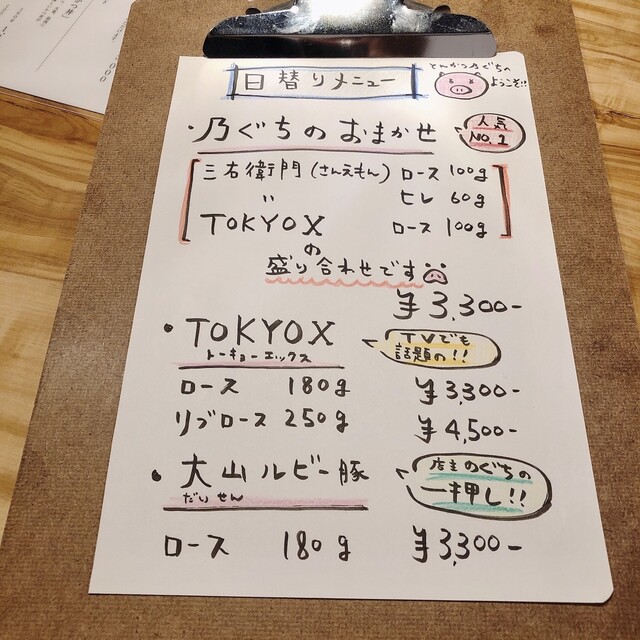 日替りメニュー
とんかつ乃ぐちの
ようこそ!!
・乃ぐちのおまかせ
人気
NO.1
三右衛門(さんえもん) ロース 100g
〃 ヒレ 60g
TOKYO X ロース 100g
の
盛り合わせです
¥3,300-
・TOKYO X
トーキョーエックス
TVでも
話題の!!
ロース 180g ¥3,300-
リブロース 250g ¥4,500-
・大山ルビー豚
だいせん
店主のぐちの
一押し!!
ロース 180g ¥3,300-